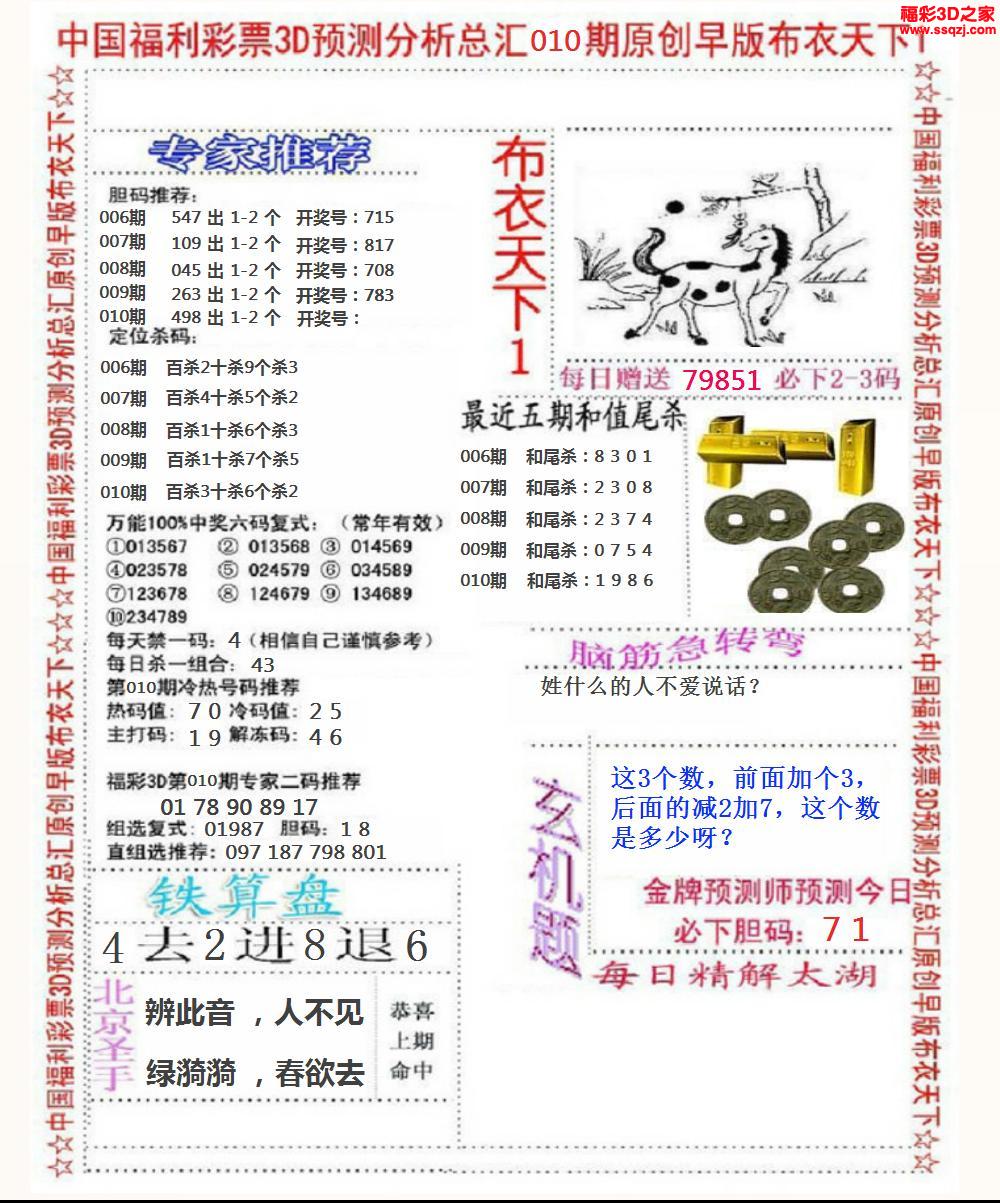 福彩3D之家
www.ssqzj.com
中国福利彩票3D预测分析总汇010期原创早版布衣天下1
☆☆中国福利彩票3D预测分析总汇原创早版布衣天下☆☆☆中国福利彩票3D预测分析总汇原创早版布衣天下☆☆
专家推荐
胆码推荐：
006期 547 出 1-2 个 开奖号：715
007期 109 出 1-2 个 开奖号：817
008期 045 出 1-2 个 开奖号：708
009期 263 出 1-2 个 开奖号：783
010期 498 出 1-2 个 开奖号：
定位杀码：
006期 百杀2十杀9个杀3
007期 百杀4十杀5个杀2
008期 百杀1十杀6个杀3
009期 百杀1十杀7个杀5
010期 百杀3十杀6个杀2
万能100%中奖六码复式：（常年有效）
①013567 ② 013568 ③ 014569
④023578 ⑤ 024579 ⑥ 034589
⑦123678 ⑧ 124679 ⑨ 134689
⑩234789
每天禁一码：4（相信自己谨慎参考）
每日杀一组合：43
第010期冷热号码推荐
热码值：7 0 冷码值：2 5
主打码：1 9 解冻码：4 6
福彩3D第010期专家二码推荐
01 78 90 89 17
组选复式：01987 胆码：1 8
直组选推荐：097 187 798 801
铁算盘
4去2进8退6
北京圣手
辨此音，人不见
绿漪漪，春欲去
恭喜
上期
命中
布衣天下1
每日赠送 79851 必下2-3码
最近五期和值尾杀
006期 和尾杀：8 3 0 1
007期 和尾杀：2 3 0 8
008期 和尾杀：2 3 7 4
009期 和尾杀：0 7 5 4
010期 和尾杀：1 9 8 6
脑筋急转弯
姓什么的人不爱说话？
玄机题
这3个数，前面加个3，
后面的减2加7，这个数
是多少呀？
金牌预测师预测今日
必下胆码：7 1
每日精解太湖
☆☆中国福利彩票3D预测分析总汇原创早版布衣天下☆☆☆中国福利彩票3D预测分析总汇原创早版布衣天下☆☆